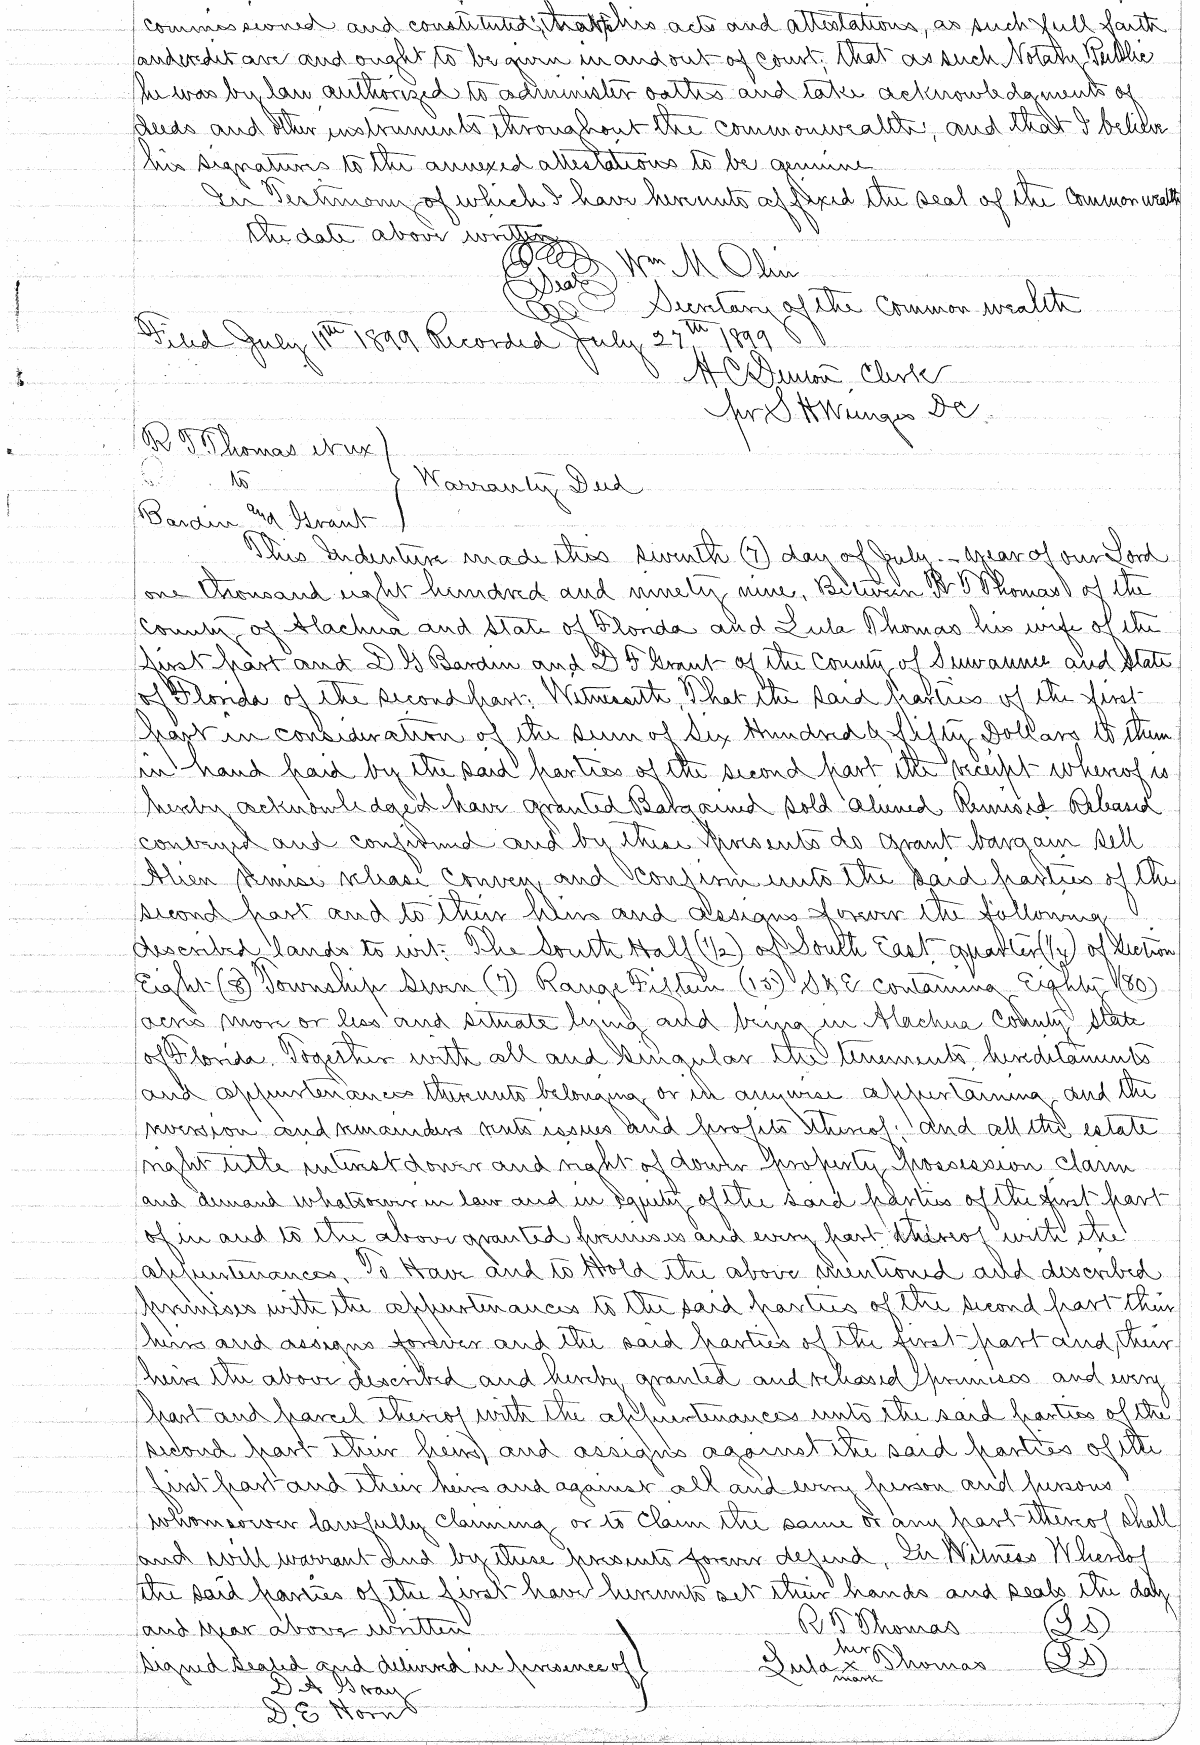 commissioned and constituted; that his acts and attestations, as such full faith
and credit are and ought to be given in and out of court; that as such Notary Public
he was by law authorized to administer oaths and take acknowledgments of
deeds and other instruments throughout the commonwealth, and that I believe
his signatures to the annexed attestations to be genuine
In Testimony of which I have hereunto affixed the seal of the Common wealth
the date above written
Seal Wm M Olin
Secretary of the Common wealth
Filed July 11th 1899 Recorded July 27th 1899
H C Denton Clerk
pr S H Wienges DC.
R T Thomas et ux
to
Warranty Deed
Bardin and Grant
This Indenture made this seventh (7) day of July - year of our Lord
one thousand eight hundred and ninety nine, Between R T Thomas of the
County of Alachua and State of Florida and Lula Thomas his wife of the
first part and D G Bardin and D F Grant of the County of Suwannee and State
of Florida of the second part; Witnesseth, That the said parties of the first
part in consideration of the sum of Six Hundred & fifty Dollars to them
in hand paid by the said parties of the second part the receipt whereof is
hereby acknowledged have granted Bargained sold aliened Remised Released
conveyed and confirmed and by these presents do grant bargain sell
Alien remise release convey and confirm unto the said parties of the
second part and to their heirs and assigns forever the following
described lands to wit: The South Half (1/2) of South East quarter (1/4) of Section
Eight (8) Township Seven (7) Range Fifteen (15) S & E containing Eighty (80)
acres more or less and situate lying and being in Alachua County State
of Florida. Together with all and singular the tenements hereditaments
and appurtenances thereunto belonging or in anywise appertaining and the
reversion and remainders rents issues and profits thereof; and all the estate
right title interest dower and right of dower property possession claim
and demand whatsoever in law and in equity of the said parties of the first part
of in and to the above granted premises and every part thereof with the
appurtenances. To Have and to Hold the above mentioned and described
premises with the appurtenances to the said parties of the second part their
heirs and assigns forever and the said parties of the first part and their
heirs the above described and hereby granted and released premises and every
part and parcel thereof with the appurtenances unto the said parties of the
second part their heirs and assigns against the said parties of the
first part and their heirs and against all and every person and persons
whomsoever lawfully claiming or to claim the same or any part thereof shall
and will warrant and by these presents forever defend. In Witness Whereof
the said parties of the first have hereunto set their hands and seals the day
and year above written R T Thomas (LS)
signed sealed and delivered in presence of Lula her x mark Thomas (LS)
D A Gray
D. E Horn